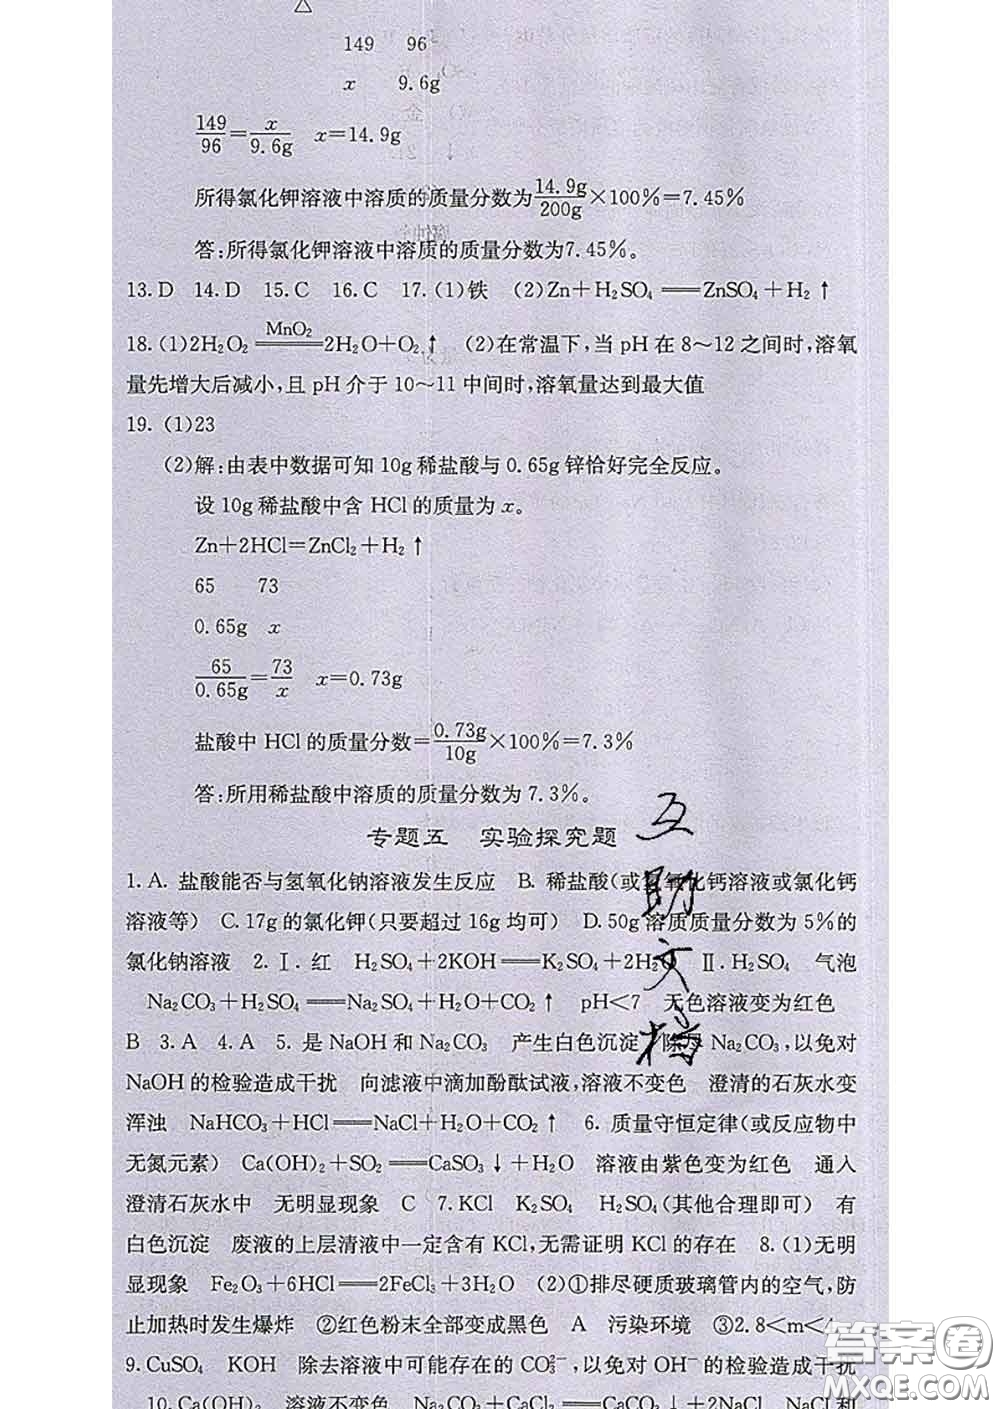 △
149 96
x 9.6g
149/96=x/9.6g x=14.9g
所得氯化钾溶液中溶质的质量分数为14.9g/200g×100%=7.45%
答:所得氯化钾溶液中溶质的质量分数为7.45%。
13.D 14.D 15.C 16.C 17.(1)铁 (2)Zn+H₂SO₄══ZnSO₄+H₂↑
18.(1)2H₂O₂ ══MnO₂══ 2H₂O+O₂↑ (2)在常温下,当pH在8~12之间时,溶氧
量先增大后减小,且pH介于10~11中间时,溶氧量达到最大值
19.(1)23
(2)解:由表中数据可知10g稀盐酸与0.65g锌恰好完全反应。
设10g稀盐酸中含HCl的质量为x。
Zn+2HCl=ZnCl₂+H₂↑
65 73
0.65g x
65/0.65g=73/x x=0.73g
盐酸中HCl的质量分数=0.73g/10g×100%=7.3%
答:所用稀盐酸中溶质的质量分数为7.3%。
专题五 实验探究题
1.A. 盐酸能否与氢氧化钠溶液发生反应 B. 稀盐酸(或氢氧化钙溶液或氯化钙
溶液等) C.17g的氯化钾(只要超过16g均可) D.50g溶质质量分数为5%的
氯化钠溶液 2.Ⅰ.红 H₂SO₄+2KOH══K₂SO₄+2H₂O Ⅱ.H₂SO₄ 气泡
Na₂CO₃+H₂SO₄══Na₂SO₄+H₂O+CO₂↑ pH<7 无色溶液变为红色
B 3.A 4.A 5.是 NaOH和Na₂CO₃ 产生白色沉淀 除尽Na₂CO₃,以免对
NaOH的检验造成干扰 向滤液中滴加酚酞试液,溶液不变色 澄清的石灰水变
浑浊 NaHCO₃+HCl══NaCl+H₂O+CO₂↑ 6.质量守恒定律(或反应物中
无氮元素) Ca(OH)₂+SO₂══CaSO₃↓+H₂O 溶液由紫色变为红色 通入
澄清石灰水中 无明显现象 C 7.KCl K₂SO₄ H₂SO₄(其他合理即可) 有
白色沉淀 废液的上层清液中一定含有KCl,无需证明KCl的存在 8.(1)无明
显现象 Fe₂O₃+6HCl══2FeCl₃+3H₂O (2)①排尽硬质玻璃管内的空气,防
止加热时发生爆炸 ②红色粉末全部变成黑色 A 污染环境 ③2.8<m<4
9.CuSO₄ KOH 除去溶液中可能存在的CO₃²⁻,以免对OH⁻的检验造成干扰
10.Ca(OH)₂ 溶液不变色 Na₂CO₃+CaCl₂══CaCO₃↓+2NaCl NaCl和
互助文档
答案圈
MXQE.COM